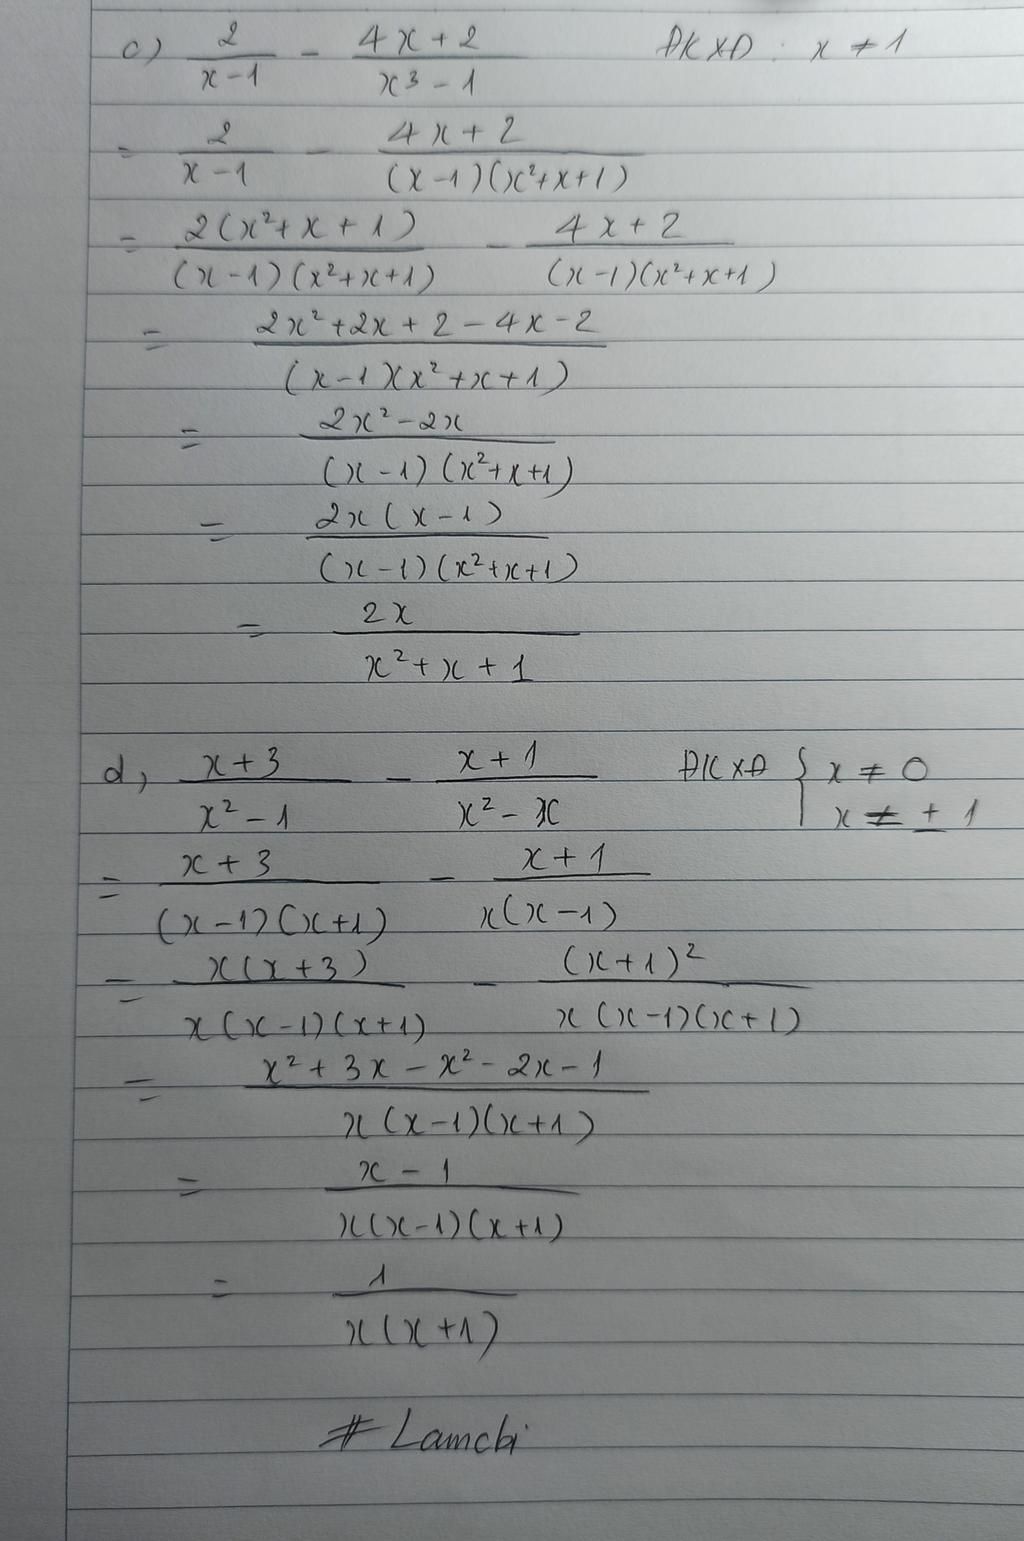 c) 2/(x-1) - (4x+2)/(x³-1) ĐKXĐ : x ≠ 1
= 2/(x-1) - (4x+2)/((x-1)(x²+x+1))
= 2(x²+x+1)/((x-1)(x²+x+1)) - (4x+2)/((x-1)(x²+x+1))
= (2x²+2x+2-4x-2)/((x-1)(x²+x+1))
= (2x²-2x)/((x-1)(x²+x+1))
= 2x(x-1)/((x-1)(x²+x+1))
= 2x/(x²+x+1)
d, (x+3)/(x²-1) - (x+1)/(x²-x) ĐKXĐ { x ≠ 0
x ≠ ± 1
= (x+3)/((x-1)(x+1)) - (x+1)/(x(x-1))
= x(x+3)/(x(x-1)(x+1)) - (x+1)²/(x(x-1)(x+1))
= (x²+3x-x²-2x-1)/(x(x-1)(x+1))
= (x-1)/(x(x-1)(x+1))
= 1/(x(x+1))
# Lamchi